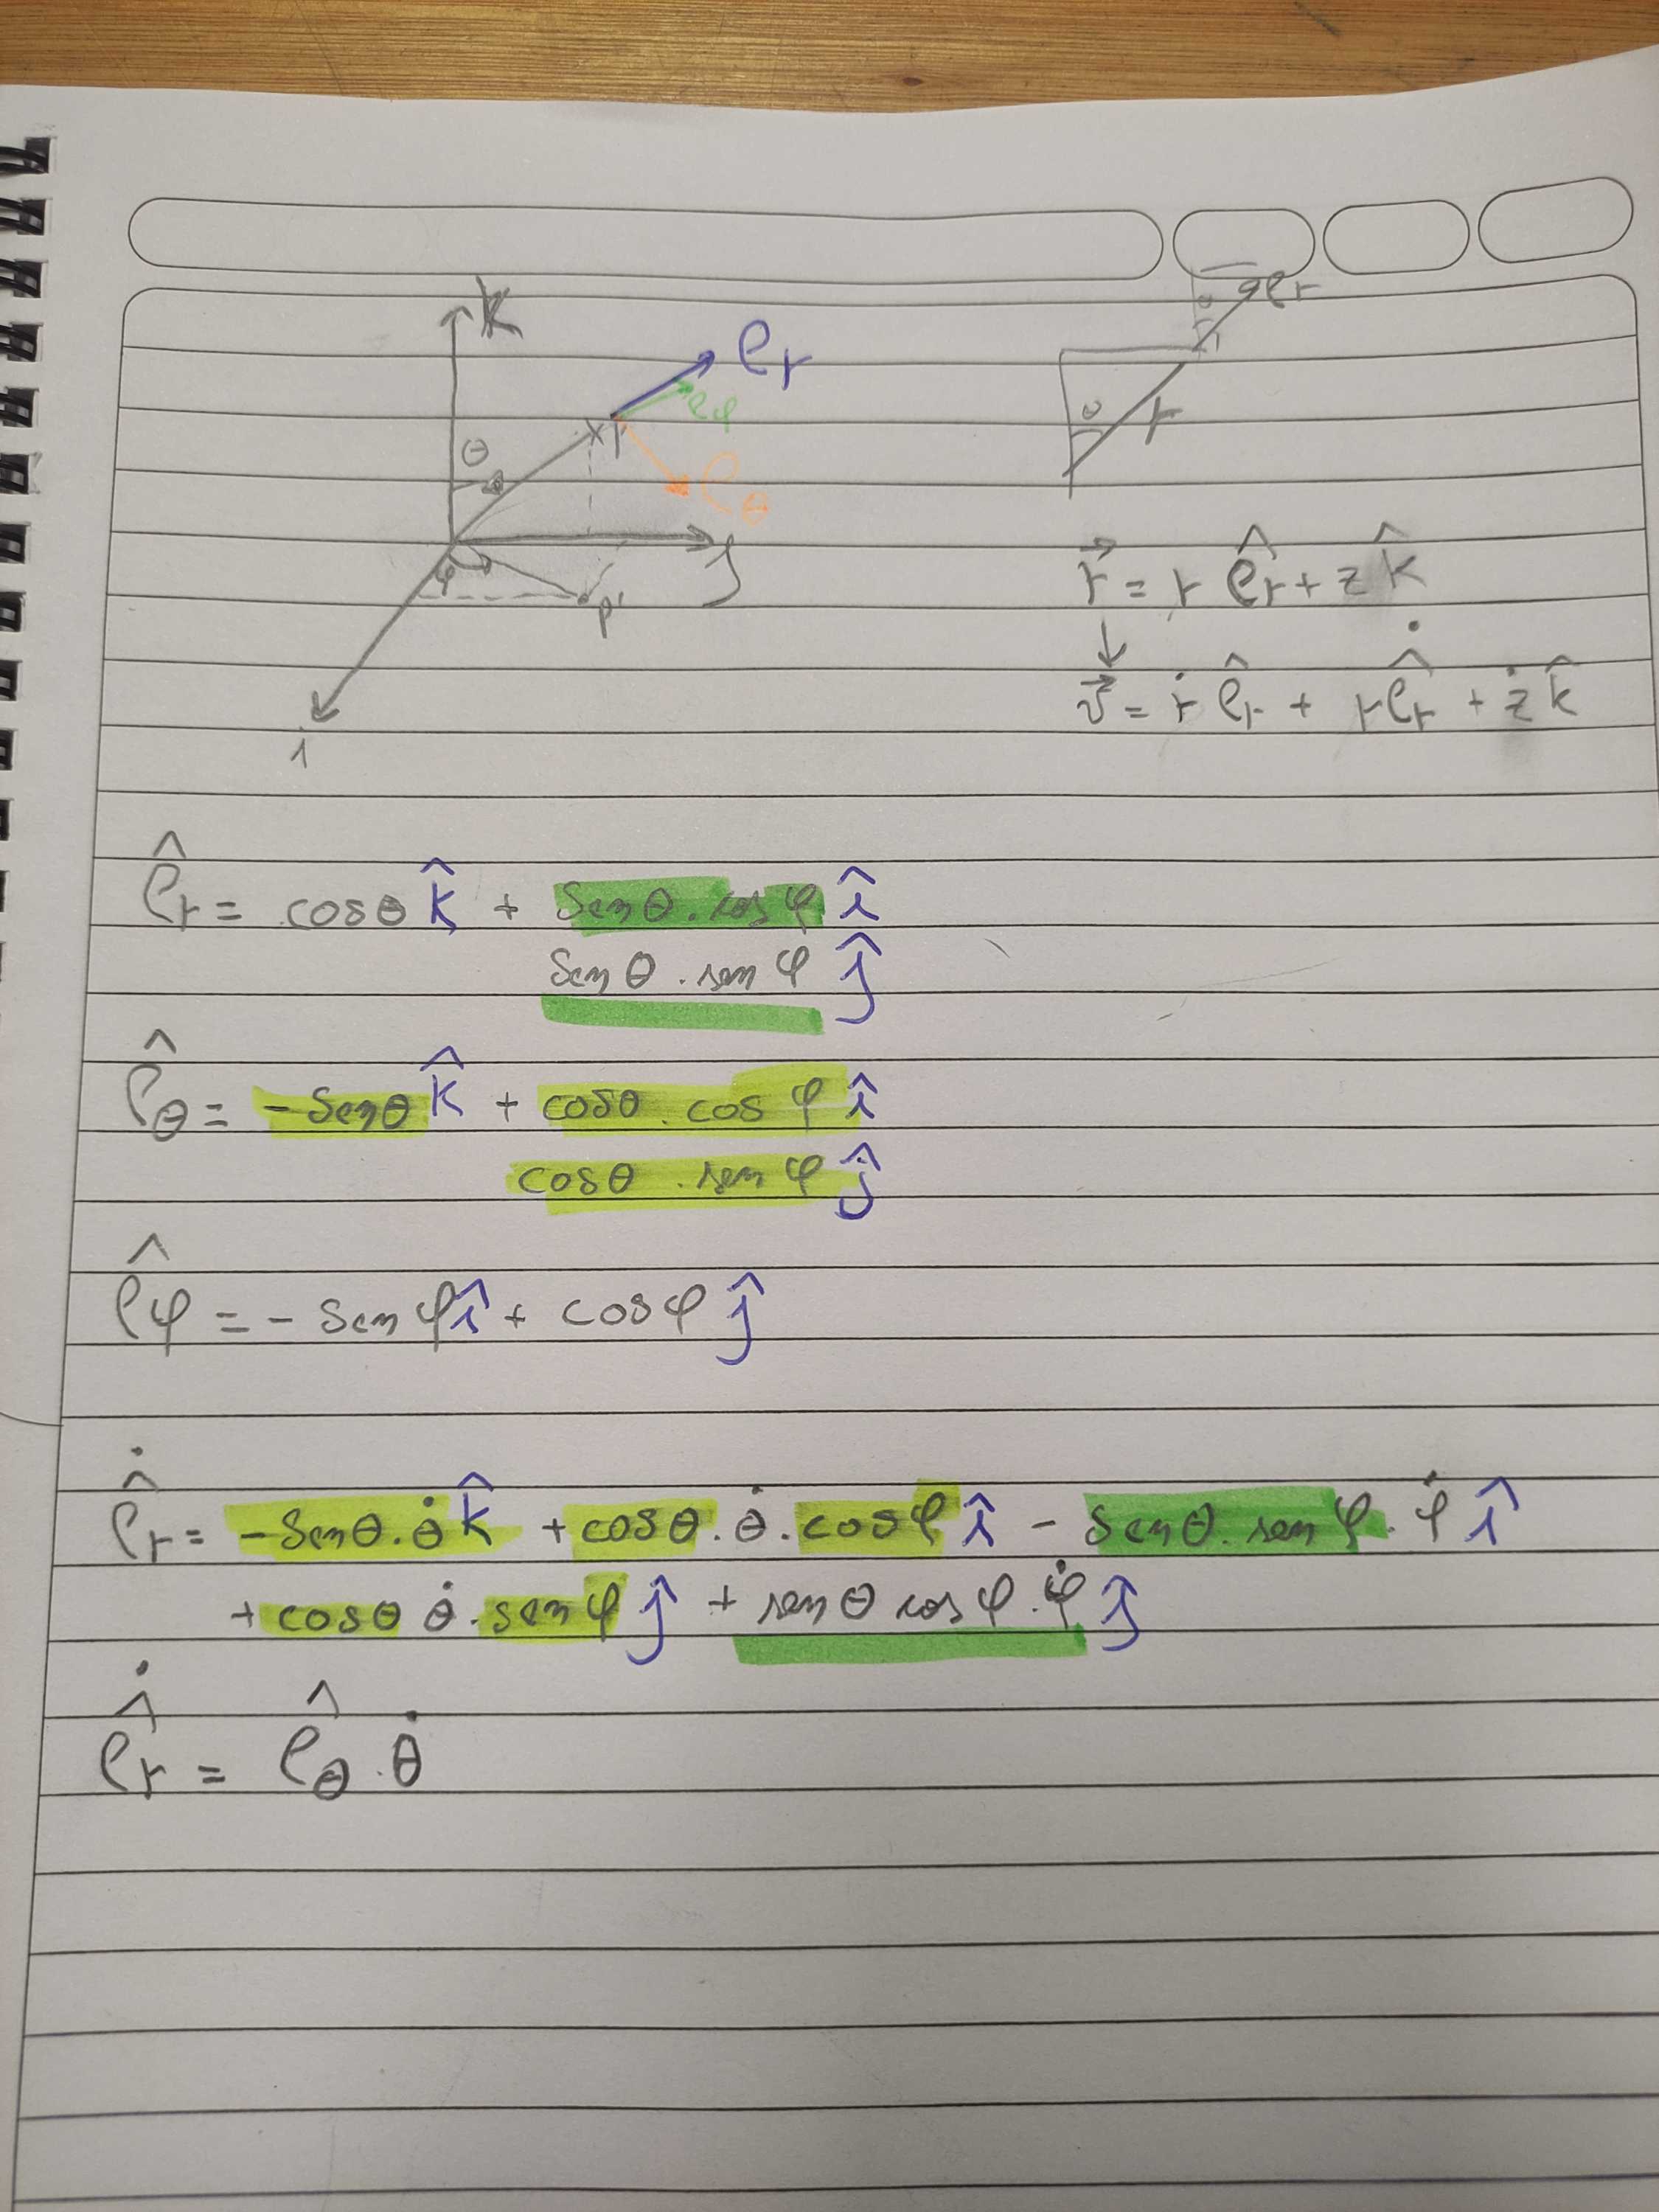 k
θ
e_r
e_φ
e_θ
φ
j
p'
i
θ
e_r
θ
r
r⃗ = r ê_r + z k̂
↓
v⃗ = ṙ ê_r + r ê̇_r + ż k̂
ê_r = cosθ k̂ + senθ . cosφ î
senθ . senφ ĵ
ê_θ = -senθ k̂ + cosθ . cosφ î
cosθ . senφ ĵ
ê_φ = - senφ î + cosφ ĵ
ê̇_r = -senθ . θ̇ k̂ + cosθ . θ̇ . cosφ î - senθ . senφ . φ̇ î
+ cosθ θ̇ . senφ ĵ + senθ cosφ . φ̇ ĵ
ê̇_r = ê_θ . θ̇